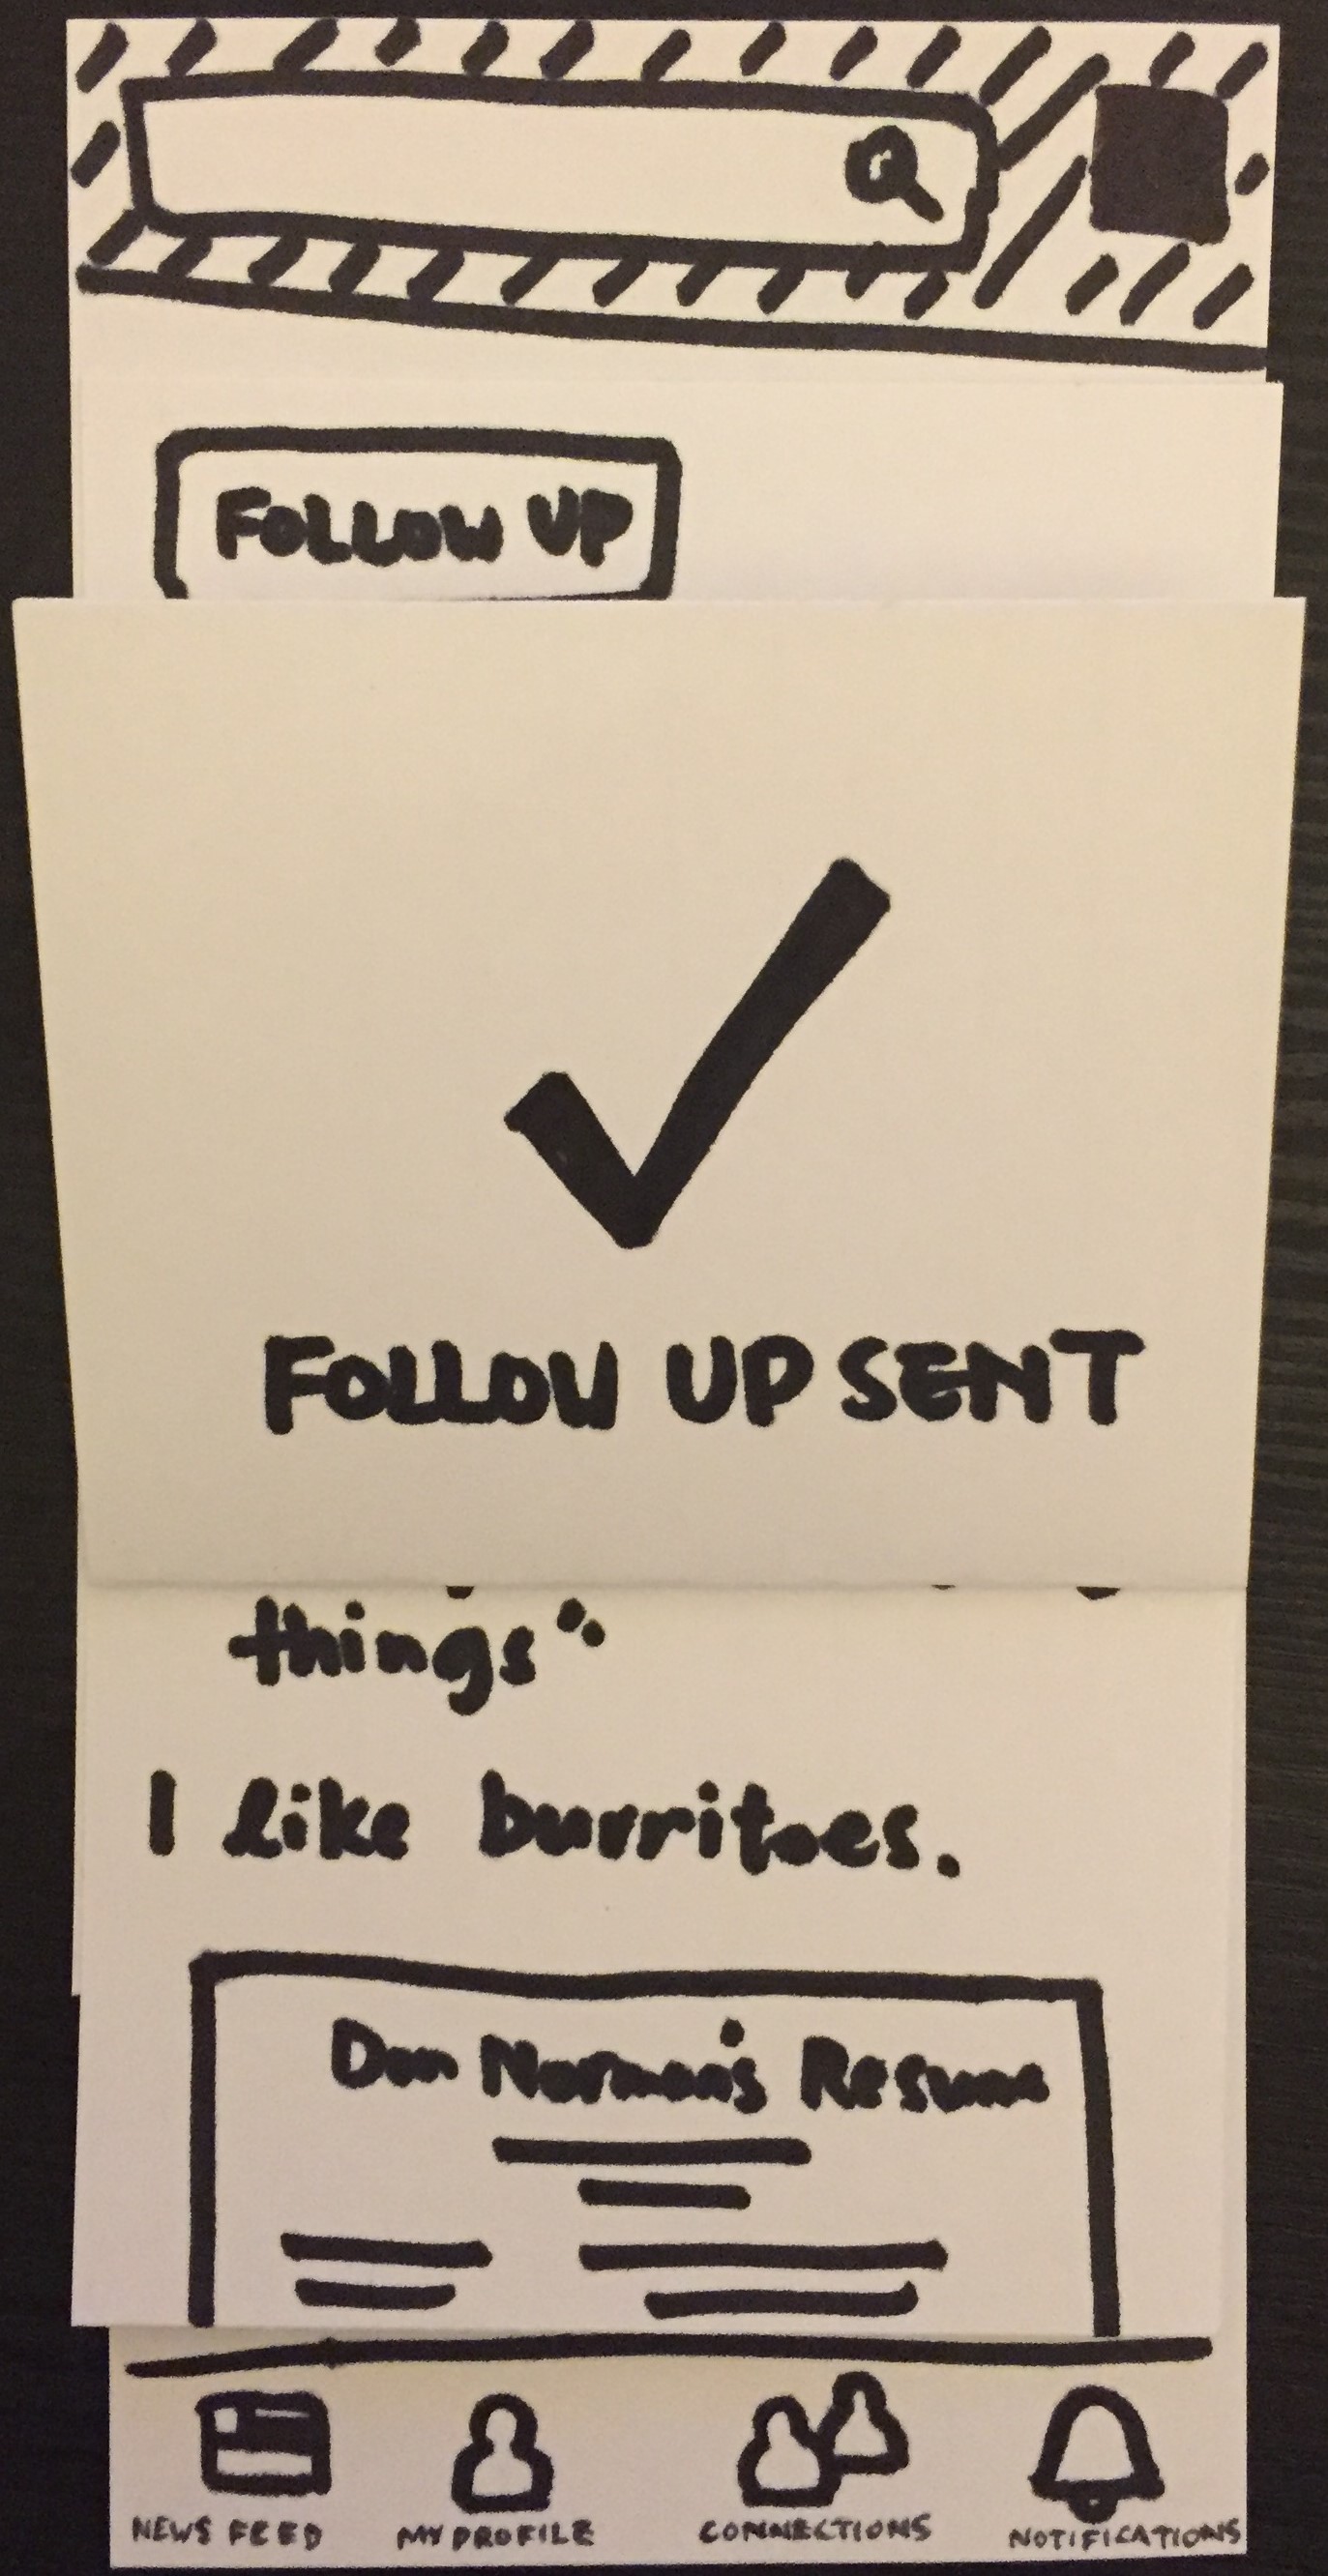 FOLLOW UP
FOLLOW UP SENT
things"
I like burritoes.
Don Norman's Resume
NEWS FEED MY PROFILE CONNECTIONS NOTIFICATIONS